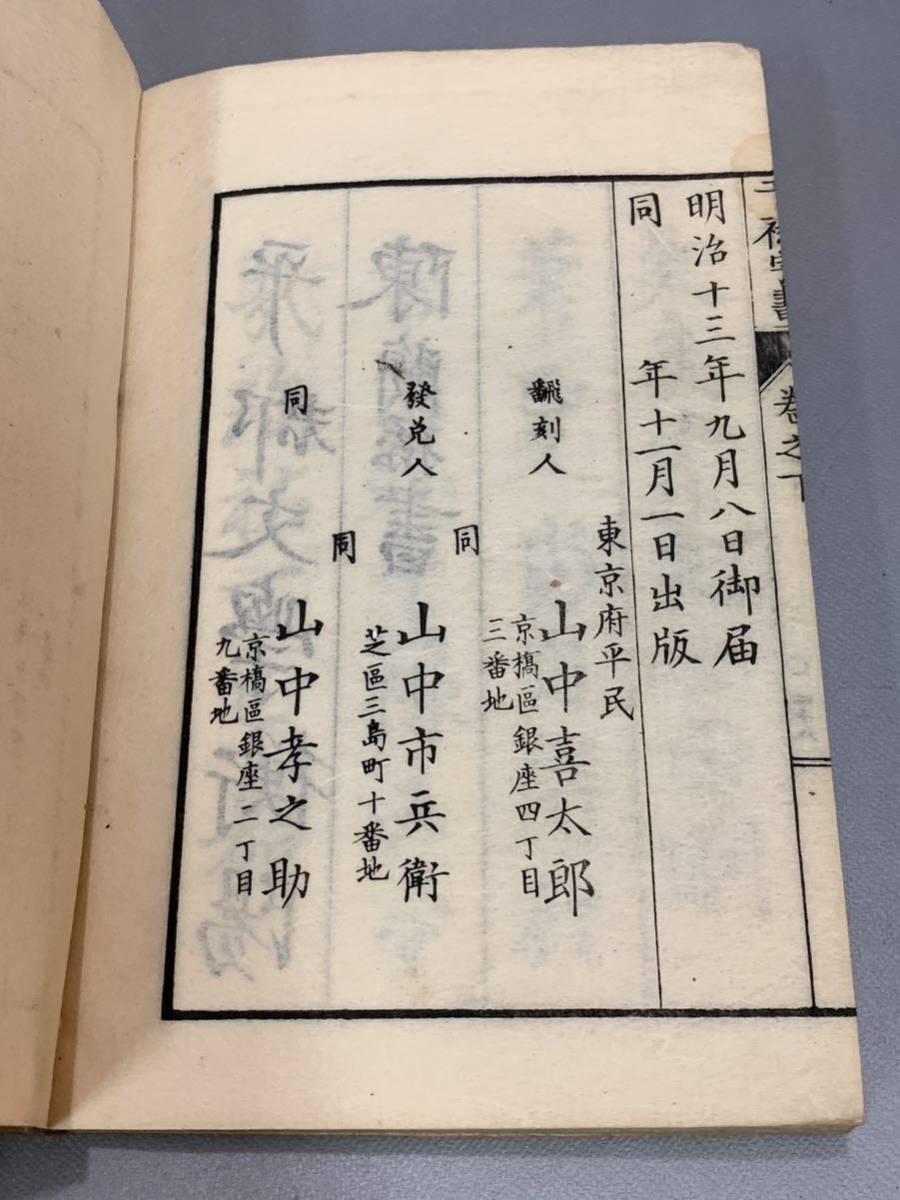 巻之下
明治十三年九月八日御届
同　年十一月一日出版
東京府平民
飜刻人　山中喜太郎
京橋區銀座四丁目
三番地
同
發兌人　山中市兵衛
芝區三島町十番地
同
同　山中孝之助
京橋區銀座二丁目
九番地